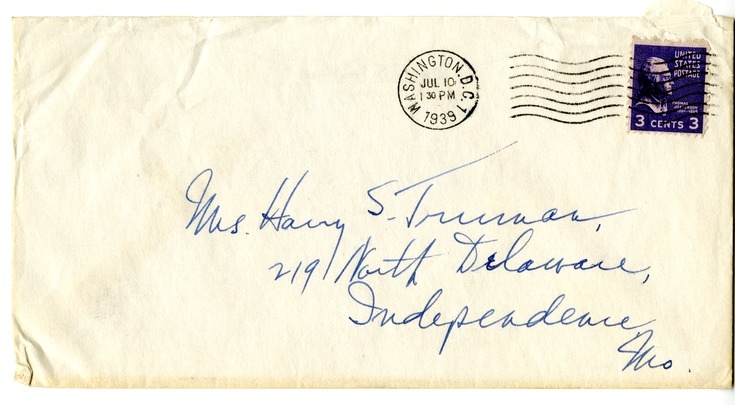 WASHINGTON, D.C. 1
JUL 10
1 30 PM
1939
UNITED
STATES
POSTAGE
THOMAS
JEFFERSON
3 CENTS 3
Mrs. Harry S. Truman,
219 North Delaware,
Independence
Mo.